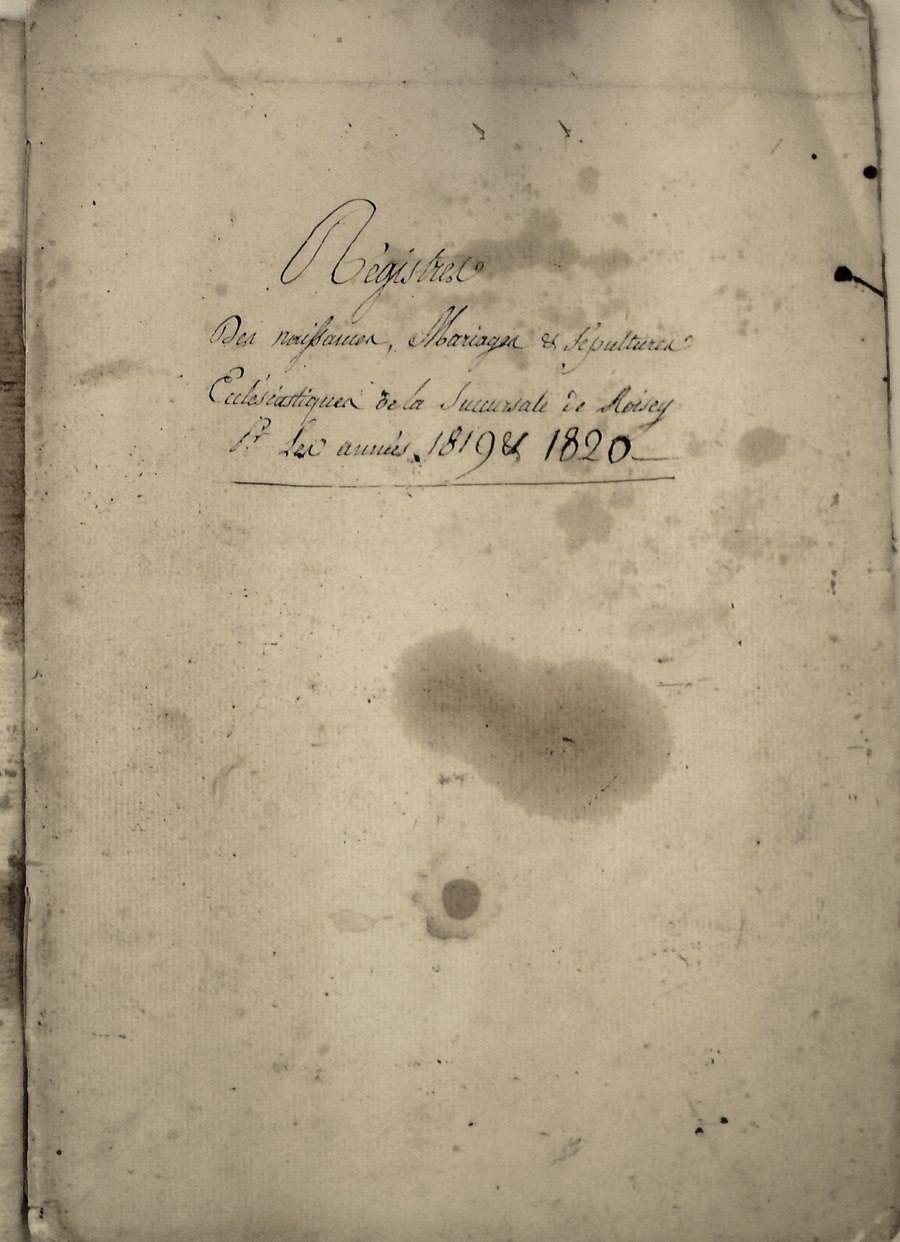 Régistres
Des naissances, Mariages & Sépultures
Ecclésiastiques de la Succursale de Roisey
Pr Les années 1819 & 1820